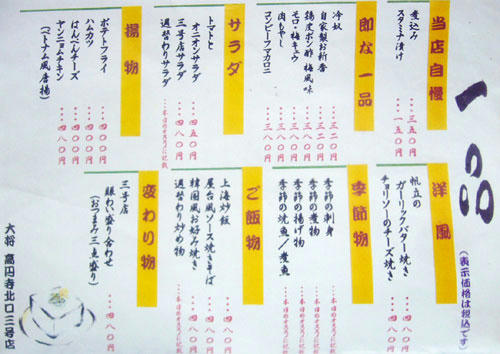 一品
(表示価格は税込です)
当店自慢
煮込み ・・・五八〇円
スタミナ漬け ・・・一五〇円
即な一品
冷奴 ・・・三二〇円
自家製お新香 ・・・三八〇円
揚皮ポン酢 梅風味 ・・・三八〇円
モロ・梅キュウ ・・・三八〇円
肉もやし ・・・三八〇円
コンビーフマカロニ ・・・三八〇円
サラダ
トマト ・・・四五〇円
オニオンサラダ ・・・四八〇円
三号店サラダ ・・・四八〇円
週替わりサラダ
揚物
ポテトフライ ・・・四八〇円
ハムカツ ・・・四八〇円
はんぺんチーズ ・・・四八〇円
ヤンニョムチキン ・・・四八〇円
(ベトナム風唐揚)
洋風
帆立の
ガーリックバター焼き ・・・四八〇円
チョリソーのチーズ焼き ・・・四八〇円
季節物
季節の刺身
季節の煮物
季節の揚げ物
季節の焼魚/煮魚
ご飯物
上海炒飯 ・・・四八〇円
屋台風ソース焼きそば ・・・四八〇円
韓国風お好み焼き ・・・四八〇円
週替わり炒め物
変わり物
三号店
賑わい盛り合わせ ・・・四八〇円
(おつまみ三点盛り)
大将 高円寺北口三号店